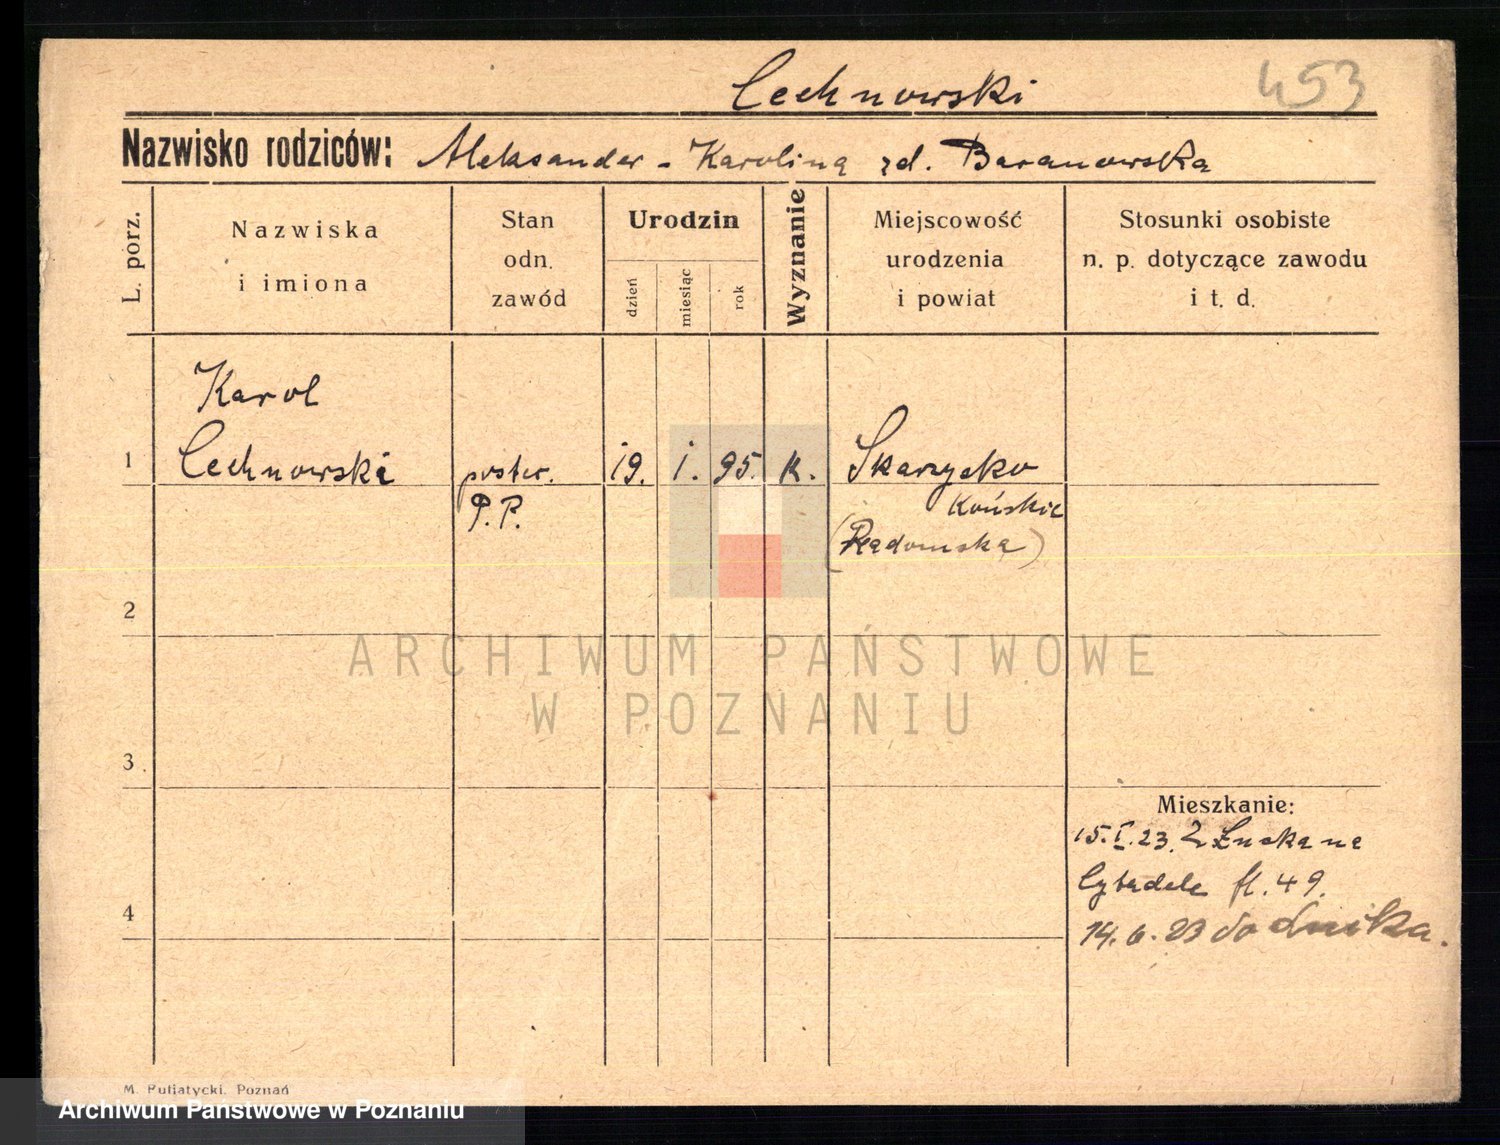 Lechnowski
453
Nazwisko rodziców: Aleksander - Karolina zd. Baranowska
L. porz.
Nazwiska
i imiona
Stan
odn.
zawód
Urodzin
dzień
miesiąc
rok
Wyznanie
Miejscowość
urodzenia
i powiat
Stosunki osobiste
n. p. dotyczące zawodu
i t. d.
Karol
1 Lechnowski poster. 19. I. 95. K. Skarzysko
P.P. Końskie
(Radomska)
2
ARCHIWUM PAŃSTWOWE
W POZNANIU
3
Mieszkanie:
15.I.23. z Łucka na
Cytadele fl. 49.
4
14.6.23 do
M. Puljatycki, Poznań
Archiwum Państwowe w Poznaniu